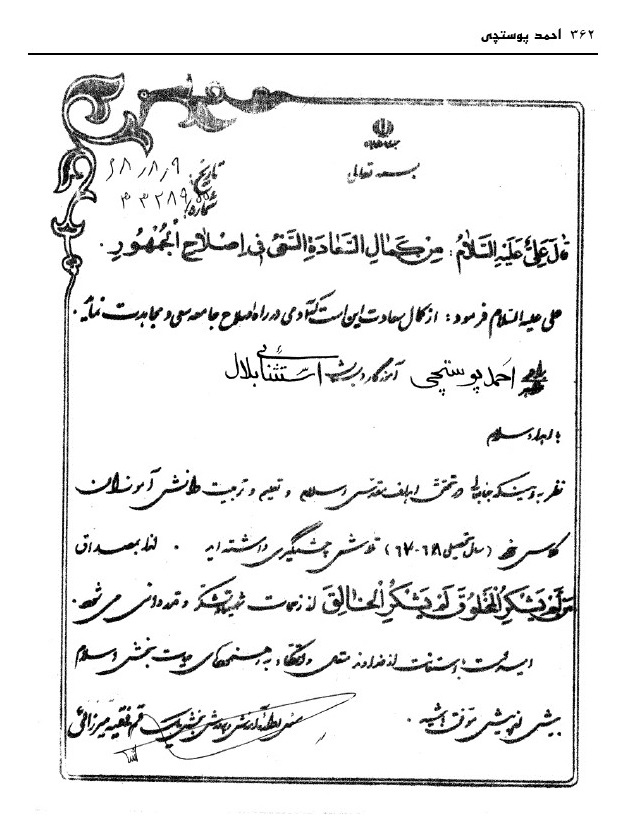 ۳۶۲ احمد پوستچی
بسمه تعالی
تاریخ ۶۸/۸/۹
شماره ۳۳۲۸۹
قالَ عَلِیٌّ عَلَیْهِ السَّلامُ: مِنْ کَمالِ السَّعادَةِ السَّعْیُ فی اِصْلاحِ الْجُمْهُورِ.
علی علیه السلام فرمود: از کمال سعادت این است که آدمی در راه اصلاح جامعه سعی و مجاهدت نماید.
برادر احمد پوستچی آموزگار دبستان استثنایی بلال
با اهداء سلام
نظر به اینکه جنابعالی در تحقق اهداف مقدس اسلام و تعلیم و تربیت دانش آموزان
کلاس خود (سال تحصیلی ۶۸-۶۷) تلاش چشمگیری داشته اید. لذا بمصداق
مَنْ لَمْ یَشْکُرِ الْمَخْلُوقَ لَمْ یَشْکُرِ الْخالِقَ از زحمات شما تشکر و قدردانی می شود.
امید است با استعانت از خداوند متعال و اتکاء به رهنمودهای حیات بخش اسلام
بیش از پیش موفق باشید.
آموزش و پرورش بخش یک قم فقیه میرزائی